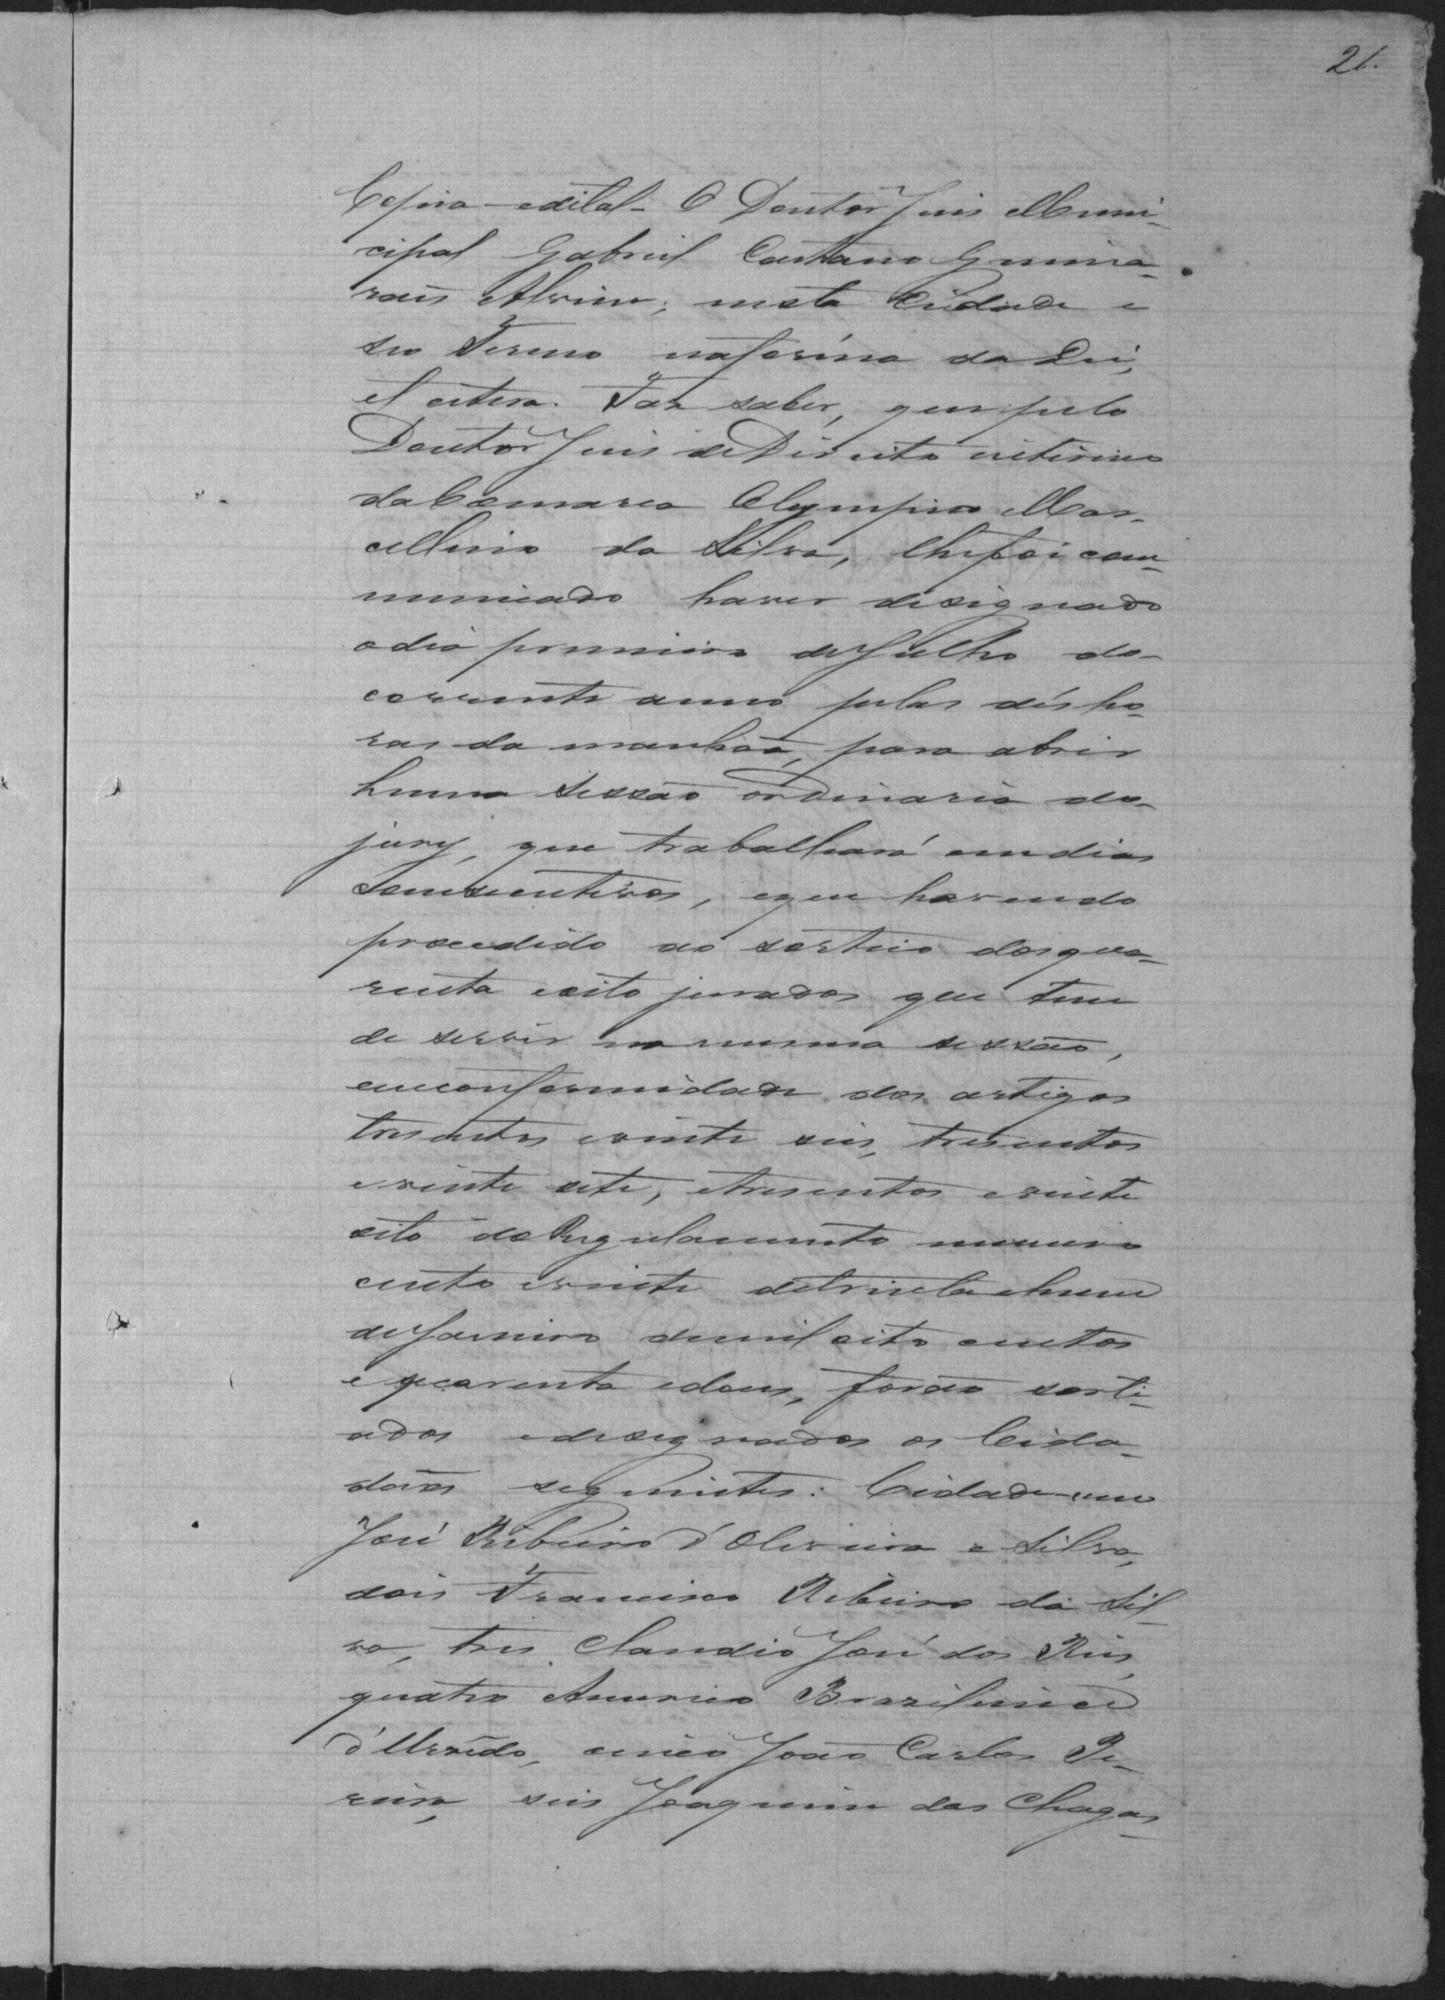 21.
Copia edital- O Doutor Juis Muni-
cipal Gabriel Caetano Guima-
rais Alvim, nesta Cidade e
seo Termo na forma da Lei,
et cetera. Faz saber, que pelo
Doutor Juis de Direito interino
da Comarca Olympio Mar-
cellino da Silva, lhe foi com-
municado haver designado
o dia primeiro de Julho do
corrente anno pelas dés ho-
ras da manhãa, para abrir
huma sessão ordinaria do
jury, que trabalhará em dias
consecutivos, e que havendo
procedido ao sorteio dos qua-
renta e oito jurados que tem
de servir na mesma sessão,
em conformidade dos artigos
tresentos e vinte seis, tresentos
e vinte sete, e tresentos e vinte
oito do Regulamento numero
cento e vinte de trinta e hum
de Janeiro de mil oito centos
e quarenta e dous, forão sorti-
ados e designados os Cida-
dãos seguintes: Cidade- um
José Ribeiro d'Oliveira e Silva,
dois Francisco Ribeiro da Sil-
va, tres Claudio José dos Reis,
quatro Americo Brazileiro
d' cinco João Carlos Pe-
reira, seis Joaquim das Chagas